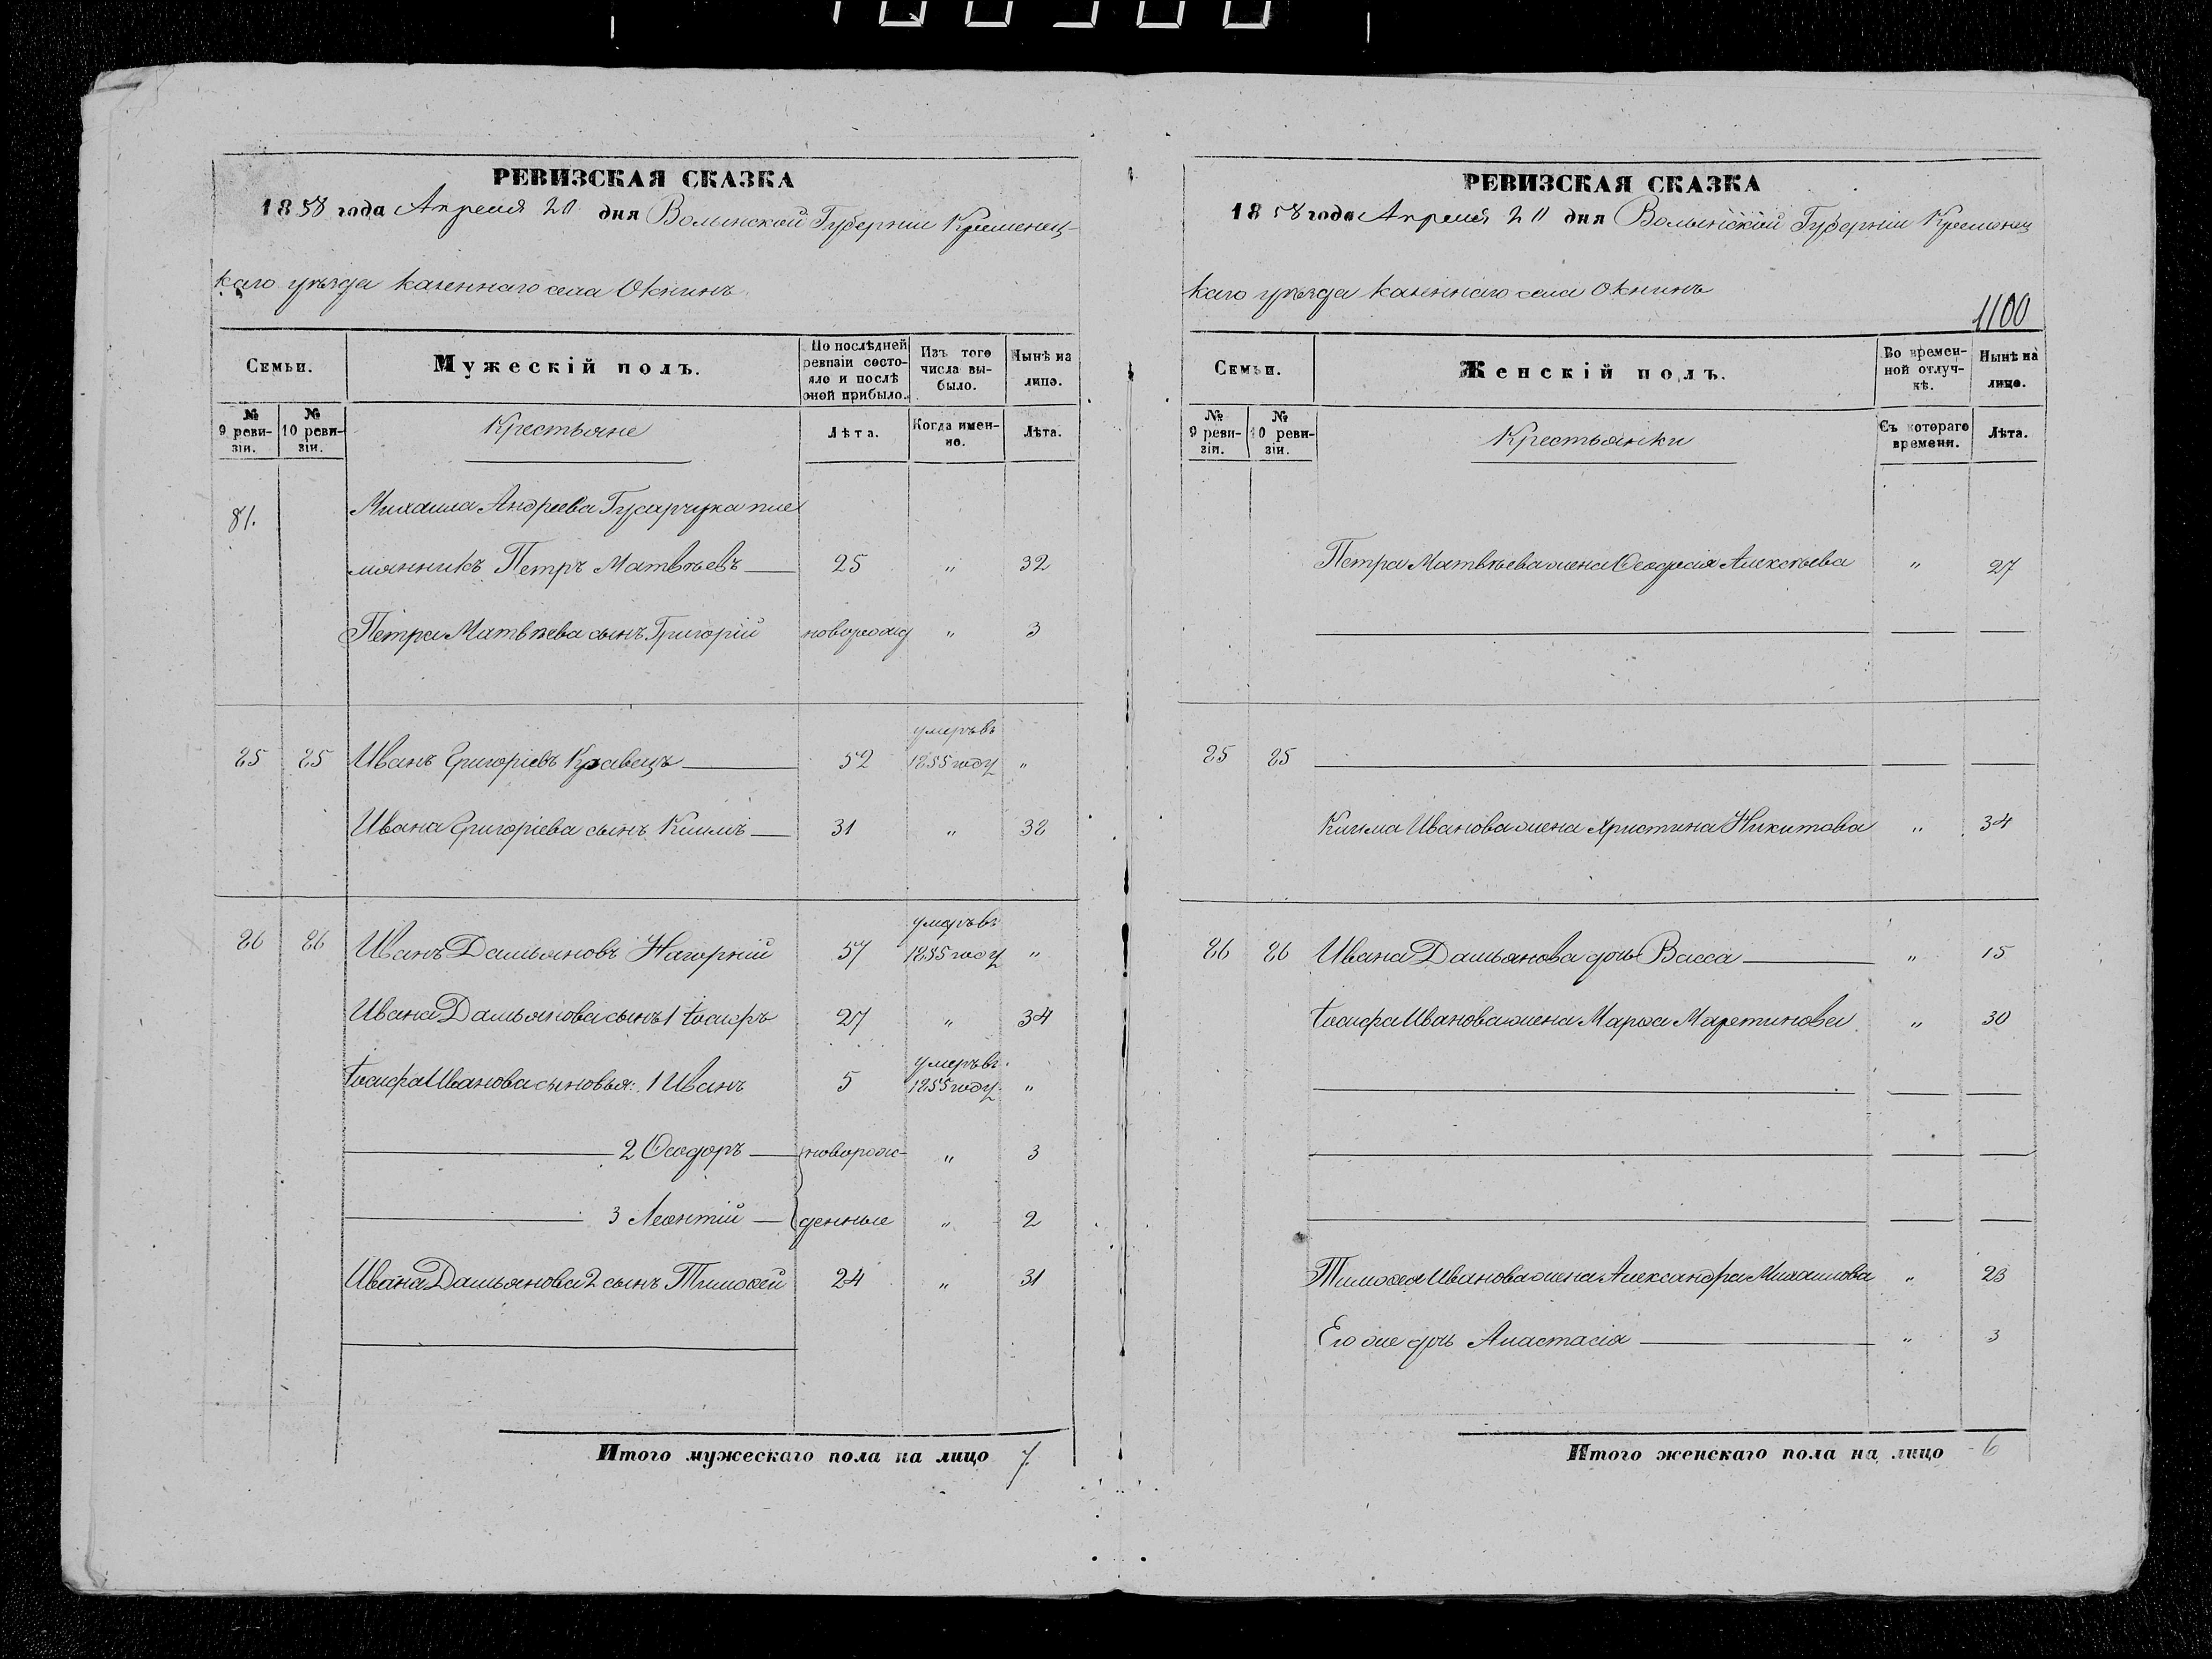 РЕВИЗСКАЯ СКАЗКА
1858 года Апреля 20 дня Волынской Губерніи Кременец-
каго уѣзда казеннаго села Окнинъ
Семьи.
Мужескій полъ.
По послѣдней ревизіи состояло и послѣ оной прибыло.
Изъ того числа выбыло.
Нынѣ на лицо.
№ 9 ревизіи.
№ 10 ревизіи.
Крестьяне
Лѣта.
Когда именно.
Лѣта.
81. Михаила Андреева Гусарчука пле
мянникъ Петръ Матвѣевъ 25 " 32
Петра Матвѣева сынъ Григорій новорожд " 3
25 25 Иванъ Григоріевъ Кравецъ 52 умеръ въ 1855 году "
Ивана Григоріева сынъ Климъ 31 " 38
26 26 Иванъ Дамьяновъ Нагорній 57 умеръ въ 1855 году "
Ивана Дамьянова сынъ 1 Іосифъ 27 " 34
Іосифа Иванова сыновья: 1 Иванъ 5 умеръ въ 1855 году "
2 Ѳеодоръ новорож- " 3
3 Леонтій денные " 2
Ивана Дамьянова 2 сынъ Тимоѳей 24 " 31
Итого мужескаго пола на лицо 7.
РЕВИЗСКАЯ СКАЗКА
1858 года Апреля 20 дня Волынской Губерніи Кременец
каго уѣзда казеннаго села Окнинъ
1100
Семьи.
Женскій полъ.
Во временной отлучкѣ.
Нынѣ на лицо.
№ 9 ревизіи.
№ 10 ревизіи.
Крестьянки
Съ котораго времени.
Лѣта.
Петра Матвѣева жена Ѳеодосія Алексѣева " 27
25 25
Клима Иванова жена Христина Никитова " 34
26 26 Ивана Дамьянова дочь Васса " 15
Іосифа Иванова жена Марѳа Мартинова " 30
Тимоѳея Иванова жена Александра Михаилова " 23
Его же дочь Анастасія " 3
Итого женскаго пола на лицо 6